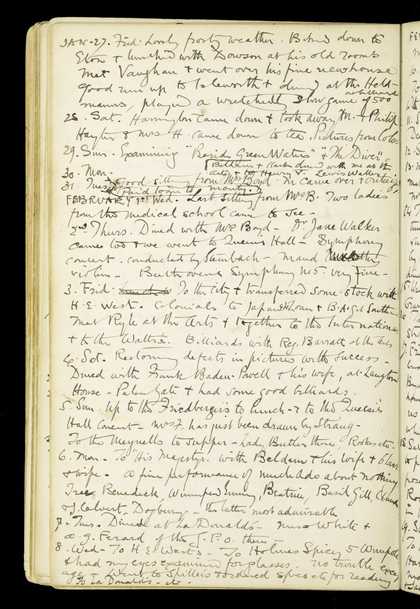 JAN. 27. Frid. Lovely frosty weather. Biked down to
Eton & lunched with Dowson at his old rooms
Met Vaughan & went over his fine new house
good run up to Isleworth & dined at the
played a wretchedly slow game of 500
at billiards
28. Sat. Harrington came down & took away M. & Philip
Hayter & Mrs H. came down to tea.
29. Sun. Examining "Rapid Green Waters" "The Diver"
30. Mon.
31. Tues. Good sitting from McBoyd. M. came over &
FEBRUARY 1st Wed. Last sitting from McB. Two ladies
from the medical school came to see
2nd Thurs. Dined with McBoyd. Dr Jane Walker
came too & we went to Queens Hall. Symphony
concert. conducted by Steinbach. Maud
violin. Beethovens Symphony No 5. very fine.
3. Frid. To the City & transferred some stock with
H. E. West. Colonials to Japanese Loan & B.A. Gt South.
Met Ryle at the Arts & together to the International
& to the Watts's. Billiards with Reg. Barratt at the
4. Sat. Restoring defects in pictures with success.
Dined with Frank Baden-Powell & his wife, at Langton
House. Palace Gate & had some good billiards.
5. Sun. Up to the Friedbergers to lunch & to the Queens
Hall Concert. Mrs F. has just been drawn by Strang.
To the Meynells to supper. Lady Butler there.
6. Mon. To His Majestys with Beldam & his wife &
& wife. a fine performance of Much Ado about Nothing
Tree, Benedick, Winnifred Emery, Beatrice, Basil Gill, Claudio
& L. Calvert, Dogberry. the latter most admirable
7. Tues. Dined at La Donalds. Miss White &
a G. Perard of the G.P.O. there.
8. Wed. To H E West's. To Holmes Spicer, 5 Wimpole
& had my eyes examined for glasses. no trouble except
age. Went to Spillers & ordered specs etc for reading
& to La Donalds. etc.